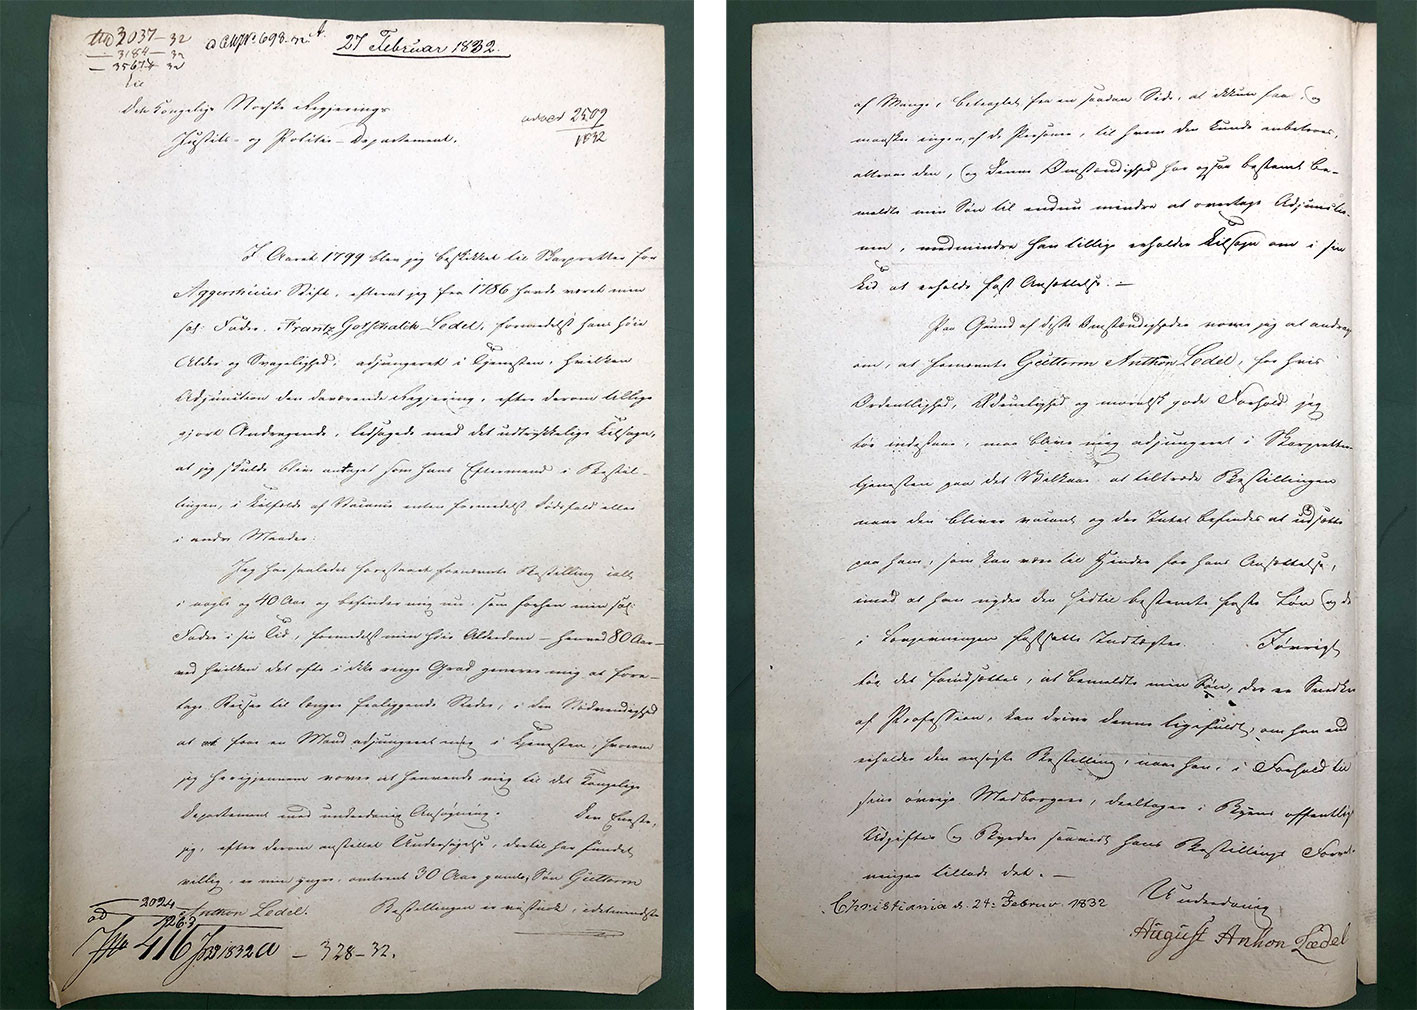 No 3037-32
- 3184-32
- 3567-32
ad No 698-32 A.
27 Februar 1832.
Til
Det Kongelige Norske Regjerings
Justits- og Politie-Departement.
2509
1832
I Aaret 1799 blev jeg beskikket til Skarpretter for
Aggershuus Stift, efterat jeg fra 1786 havde været min
sal: Fader, Frantz Gotschalck Ledel, formedelst hans høie
Alder og Svagelighed, adjungeret i Tjenesten, hvilken
Adjunction den daværende Regjering, efter derom tillige
gjort Andragende, ledsagede med det udtrykkelige Tilsagn,
at jeg skulde blive antaget som hans Eftermand i Bestil-
lingen, i Tilfælde af Vacance enten formedelst Dødsfald eller
i andre Maader.
Jeg har saaledes forestaaet fornævnte Bestilling i alt
i nogle og 40 Aar og befinder mig nu, som forhen min sal:
Fader i sin Tid, formedelst min høie Alderdom - henved 80 Aar -
ved hvilken det ofte i ikke ringe Grad generer mig at fore-
tage Reiser til længer fraliggende Steder, i den Nødvendighed
at faae en Mand adjungeret mig i Tjenesten, hvorom
jeg herigjennem vover at henvende mig til det Kongelige
Departement med underdanig Ansøgning. Den Eneste,
jeg, efter derom anstillet Undersøgelse, dertil har fundet
villig, er min yngre, omtrent 30 Aar gamle, Søn Güttorm
Anthon Ledel. Bestillingen er
ad 2024
1263
Jno 416 1832 a - 328-32.
af Mange, betragtet fra en saadan Side, at ikkun faa, og
maaskee ingen af de Personer, til hvem den kunde anbetroes,
attraaer den, og denne Omstændighed har ogsaa bestemt be-
meldte min Søn til endnu mindre at overtage Adjunctio-
nen, medmindre han tillige erholder Tilsagn om i sin
Tid at erholde fast Ansættelse. -
Paa Grund af disse Omstændigheder vover jeg at andrage
om, at fornævnte Güttorm Anthon Ledel, for hvis
Ordentlighed, Ædruelighed og moralsk gode Forhold jeg
tør indestaae, maa blive mig adjungeret i Skarpretter-
tjenesten paa det Vilkaar at tiltræde Bestillingen
naar den bliver vacant og der Intet befindes at udsætte
paa ham, som kan være til Hinder for hans Ansættelse,
imod at han nyder den hidtil bestemte faste Løn og de
i Lovgivningen fastsatte Indtægter. Iøvrigt
tør det forudsættes, at bemeldte min Søn, der er Snedker
af Profession, kan drive denne ligefuldt, om han end
erholder den ansøgte Bestilling, naar han, i Forhold til
sine øvrige Medborgere, deeltager i Byens offentlige
Udgifter og Byrder saavidt hans Bestillings Forret-
ninger tillade det. -
Christiania d. 24: Februar 1832
Underdanig
August Anthon Lædel